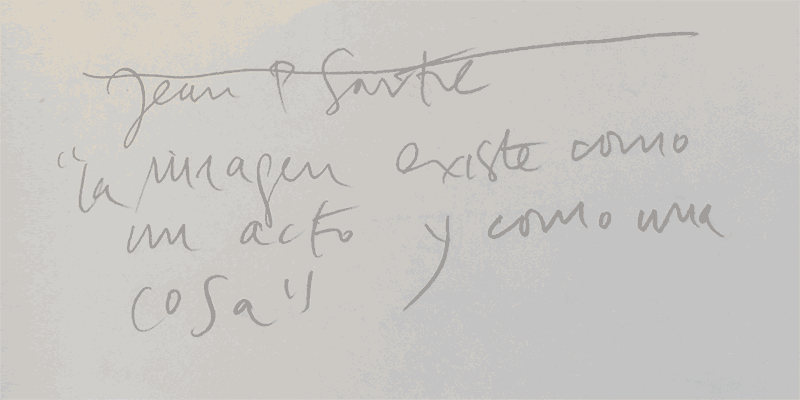 Jean P Sartre
"la imagen existe como
un acto y como una
cosa"